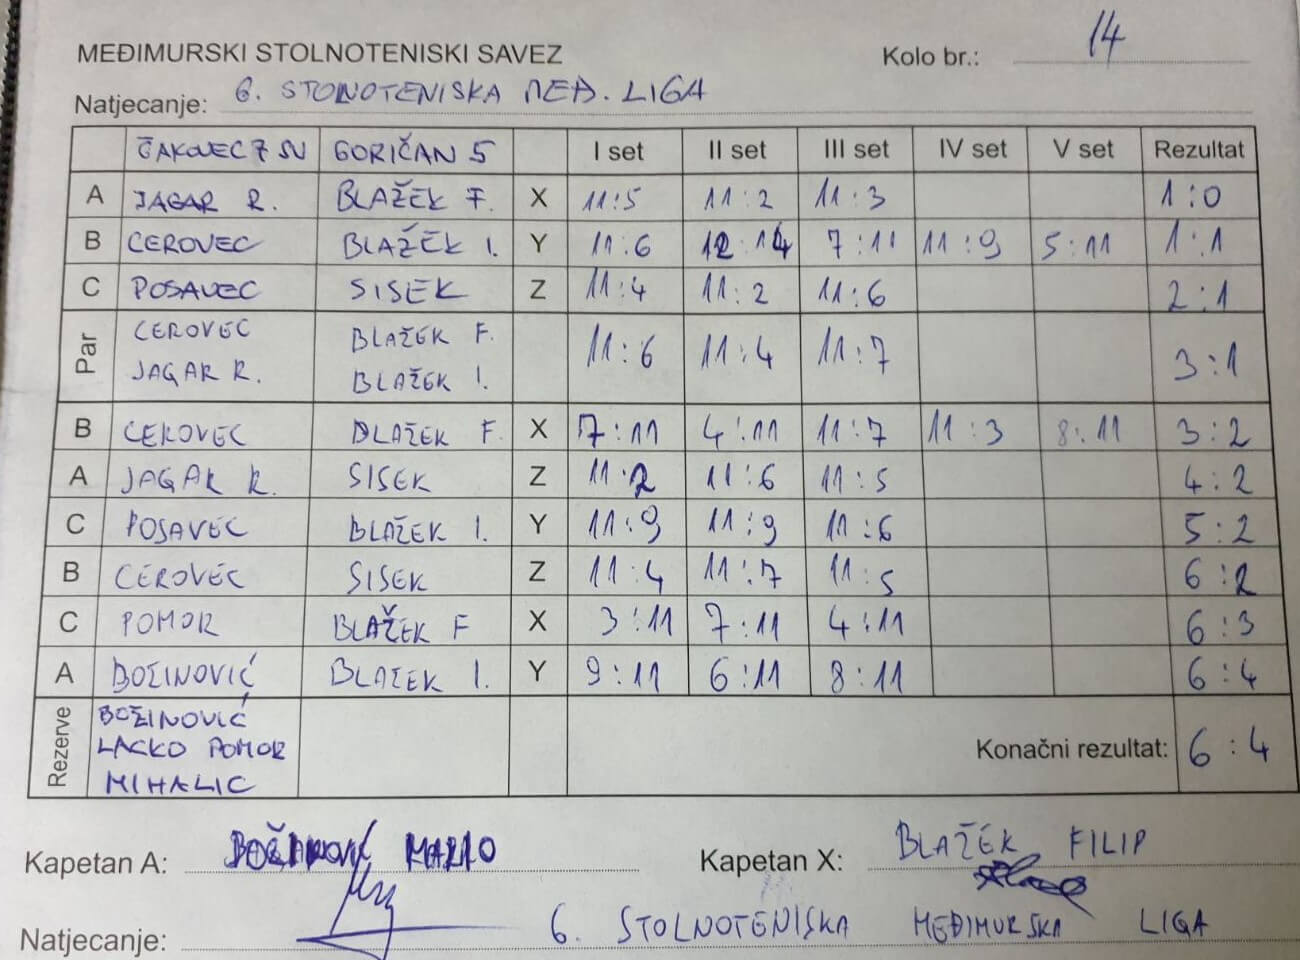 MEĐIMURSKI STOLNOTENISKI SAVEZ Kolo br.: 14
Natjecanje: 6. STOLNOTENISKA MEĐ. LIGA
ČAKOVEC 7 SV GORIČAN 5 I set II set III set IV set V set Rezultat
A JAGAR R. BLAŽEK F. X 11:5 11:2 11:3 1:0
B CEROVEC BLAŽEK I. Y 11:6 12:14 7:11 11:9 5:11 1:1
C POSAVEC SISEK Z 11:4 11:2 11:6 2:1
Par CEROVEC BLAŽEK F. 11:6 11:4 11:7 3:1
JAGAR R. BLAŽEK I.
B CEROVEC BLAŽEK F. X 7:11 4:11 11:7 11:3 8:11 3:2
A JAGAR R. SISEK Z 11:2 11:6 11:5 4:2
C POSAVEC BLAŽEK I. Y 11:9 11:9 11:6 5:2
B CEROVEC SISEK Z 11:4 11:7 11:5 6:2
C POMOR BLAŽEK F X 3:11 7:11 4:11 6:3
A BOŽINOVIĆ BLAŽEK I. Y 9:11 6:11 8:11 6:4
Rezerve BOŽINOVIĆ
LACKO POMOR Konačni rezultat: 6:4
MIHALIC
Kapetan A: BOŽINOVIĆ MARIO Kapetan X: BLAŽEK FILIP
Natjecanje: 6. STOLNOTENISKA MEĐIMURSKA LIGA